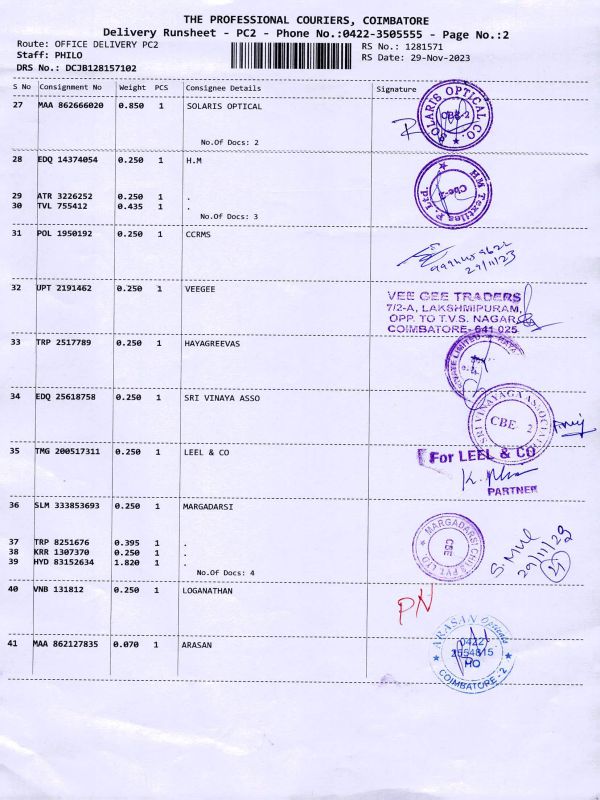 THE PROFESSIONAL COURIERS, COIMBATORE
Delivery Runsheet - PC2 - Phone No.:0422-3505555 - Page No.:2
Route: OFFICE DELIVERY PC2 RS No.: 1281571
Staff: PHILO RS Date: 29-Nov-2023
DRS No.: DCJB128157102
S No Consignment No Weight PCS Consignee Details Signature
27 MAA 862666020 0.850 1 SOLARIS OPTICAL
SOLARIS OPTICAL CO.
CBE-2
No.Of Docs: 2
28 EDQ 14374054 0.250 1 H.M
HM Textiles P. Ltd.
Cbe-2
29 ATR 3226252 0.250 1 .
30 TVL 755412 0.435 1 .
No.Of Docs: 3
31 POL 1950192 0.250 1 CCRMS
29/11/23
32 UPT 2191462 0.250 1 VEEGEE
VEE GEE TRADERS
7/2-A, LAKSHMIPURAM,
OPP. TO T.V.S. NAGAR,
COIMBATORE- 641 025
33 TRP 2517789 0.250 1 HAYAGREEVAS
34 EDQ 25618758 0.250 1 SRI VINAYA ASSO
SRI VINAYAGA ASSOCIATE
CBE 2
35 TMG 200517311 0.250 1 LEEL & CO
For LEEL & CO
PARTNER
36 SLM 333853693 0.250 1 MARGADARSI
MARGADARSI CHIT PVT LTD
CBE
37 TRP 8251676 0.395 1 .
38 KRR 1307370 0.250 1 .
39 HYD 83152634 1.820 1 .
29/11/23
21
No.Of Docs: 4
40 VNB 131812 0.250 1 LOGANATHAN
PN
41 MAA 862127835 0.070 1 ARASAN
ARASAN Opticals
0422
2554815
MO
COIMBATORE - 2